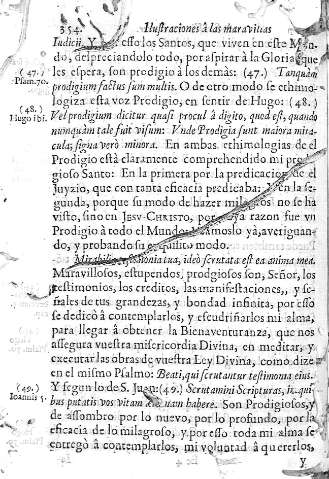 354. Ilustraciones à las maravillas
Iudicij. Y esso los Santos, que viven en este Mun-
do, despreciandolo todo, por aspirar à la Gloria que
(47.) les espera, son prodigio à los demàs: (47.) Tanquàm
Psalm.70. prodigium factus sum multis. O de otro modo se ethimo-
(48.) logiza esta voz Prodigio, en sentir de Hugo: (48.)
Hugo ibi. Vel prodigium dicitur quasi procul à digito, quod est, quando
nunquàm tale fuit visum: Vnde Prodigia sunt maiora mira-
cula, signa verò minora. En ambas ethimologias de el
Prodigio està claramente comprehendido mi
gioso Santo: En la primera por la predicacion de el
Juyzio, que con tanta eficacia predicaba: Y en la se-
gunda, porque su modo de hazer milagros no se ha
visto, sino en JESV-CHRISTO, por razon fue vn
Prodigio à todo el Mundo. Vamoslo yà, averiguan-
do, y probando su exquisito modo.
Mirabilia testimonia tua, ideò scrutata est ea anima mea.
Maravillosos, estupendos, prodgiosos son, Señor, los
testimonios, los creditos, las manifestaciones, y se-
ñales de tus grandezas, y bondad infinita, por esso
se dedicò à contemplarlos, y escudriñarlos mi alma,
para llegar à obtener la Bienaventuranza, que nos
assegura vuestra misericordia Divina, en meditar, y
executar las obras de vuestra Ley Divina, como dize
en el mismo Psalmo: Beati, qui scrutantur testimonia eius.
(49.) Y segun lo de S. Juan: (49.) Scrutamini Scripturas, in qui-
Ioannis 5. bus putatis vos vitam habere. Son Prodigiosos, y
de assombro por lo nuevo, por lo profundo, por la
eficacia de lo milagroso, y por esso toda mi alma se
entregò à contemplarlos, mi voluntad à quererlos,
y